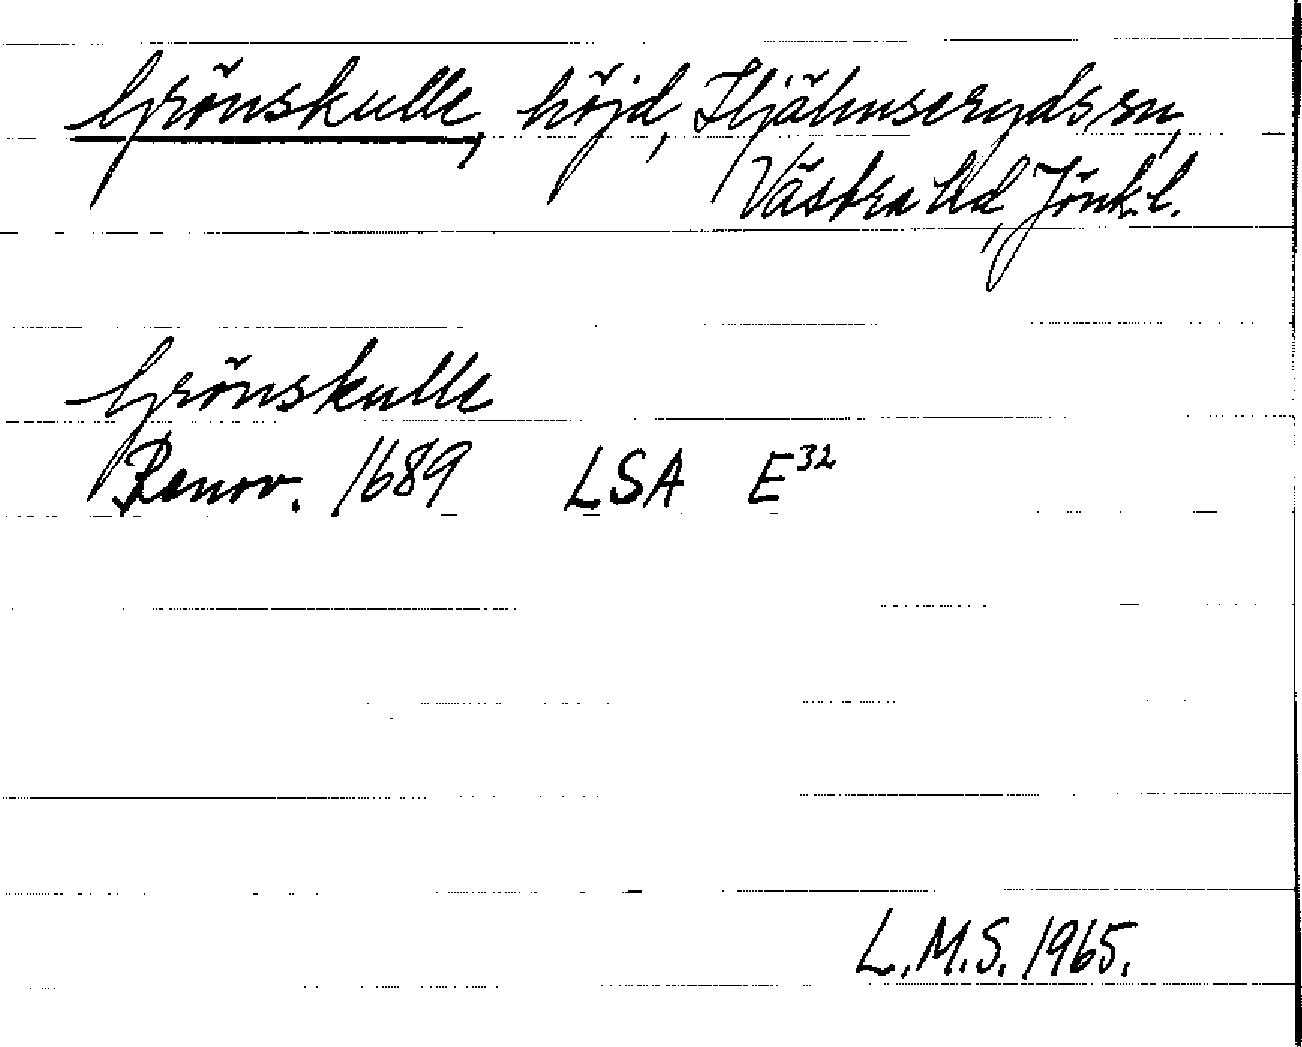 Grönskulle, höjd, Hjälmseryds sn,
Västra hd, Jönk. l.
Grönskulle
Renov. 1689 LSA E³²
L.M.S. 1965.